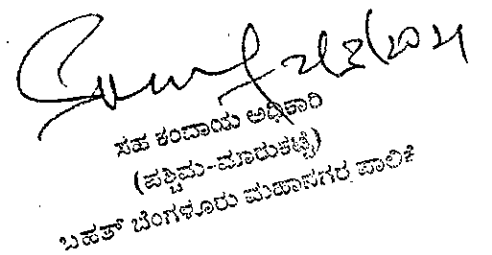 ಸಹ ಕಂದಾಯ ಅಧಿಕಾರಿ
(ಪಶ್ಚಿಮ-ಮಾರುಕಟ್ಟೆ)
ಬಹತ್ ಬೆಂಗಳೂರು ಮಹಾನಗರ ಪಾಲಿಕೆ